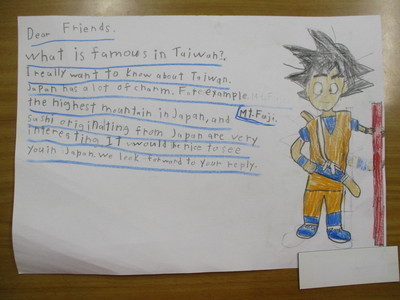 Dear Friends.
What is famous in Taiwan?.
I really want to know about Taiwan.
Japan has a lot of charm. Fore example.
Mt.Fuji.
the highest mountain in Japan, and
sushi originating from Japan are very
interesting It would be nice to see
you in Japan. we look forward to your reply.